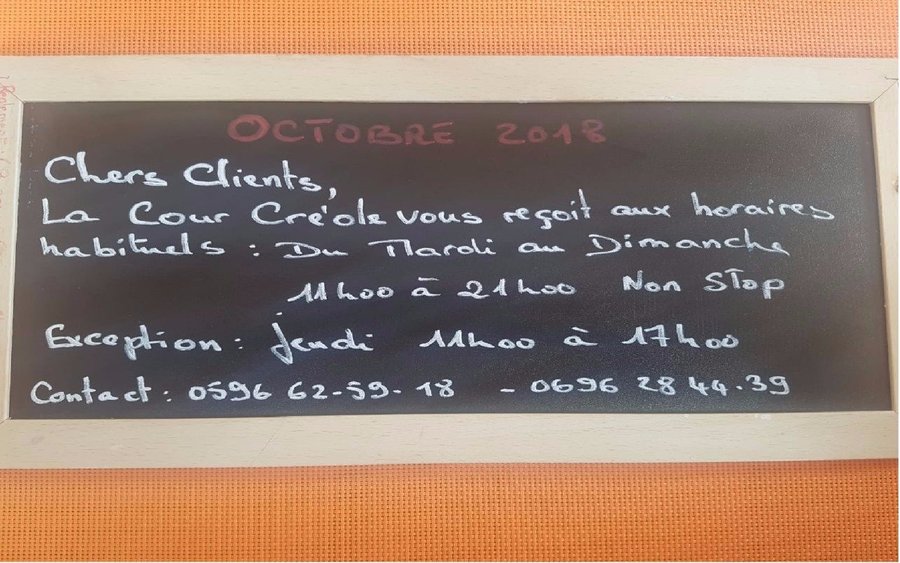 OCTOBRE 2018
Chers Clients,
La Cour Créole vous reçoit aux horaires
habituels : Du Mardi au Dimanche
11h00 à 21h00 Non STop
Exception : jeudi 11h00 à 17h00
Contact : 0596 62-59-18 - 0696 28 44.39